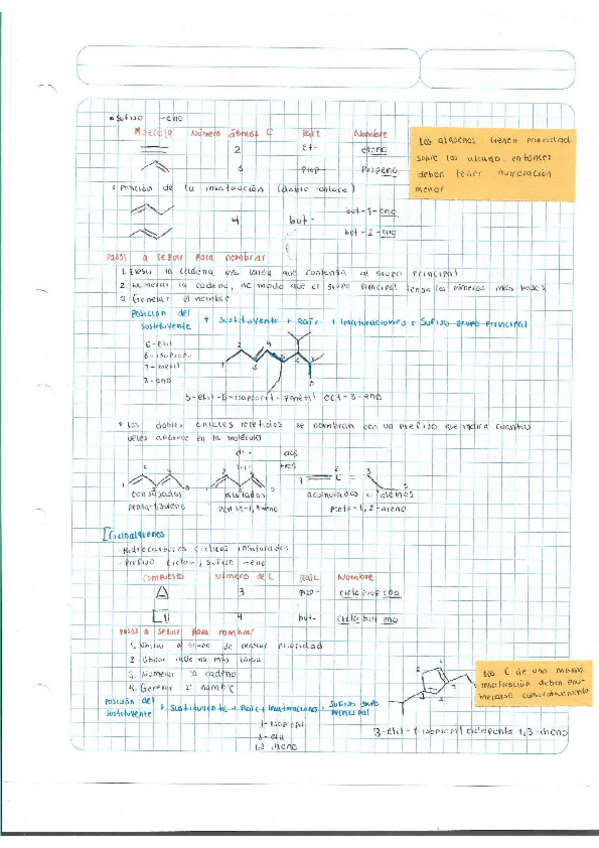 • Sufijo -eno
Molécula Número átomos C Raíz Nombre
2 Et- eteno
3 Prop- Propeno
Los alquenos tienen prioridad
sobre los alcanos entonces
deben tener numeración
menor
• Posición de la insaturación (doble enlace)
4 but- but-1-eno
but-2-eno
Pasos a seguir para nombrar
1. Elegir la cadena más larga que contenga al grupo principal
2. Numerar la cadena, de modo que el grupo principal tenga los números más bajos
3. Generar el nombre
Posición del
sustituyente + Sustituyente + Raíz + Insaturaciones + Sufijo grupo principal
5-etil-6-isopropil-7metil oct-3-eno
• Los dobles enlaces repetidos se nombran con un prefijo que indica cuantas
veces aparece en la molécula
di-
tri-
conjugados aislados acumulados alenos
penta-1,3dieno penta-1,4-dieno penta-1,2-dieno
Cicloalquenos
- Hidrocarburos cíclicos insaturados
- Prefijo ciclo-, sufijo -eno
Compuesto Número de C Raíz Nombre
3 prop- ciclopropeno
4 but- ciclobuteno
Pasos a seguir para nombrar
1. Ubicar el grupo de mayor prioridad
2. Ubicar cadena más larga
3. Numerar la cadena
4. Generar el nombre
Los C de una misma
insaturación deben enu-
merarse consecutivamente
Posición del
sustituyente + Sustituyente + Raíz + Insaturaciones + Sufijo grupo
principal
1-isopropil
3-etil
1,3 dieno
3-etil-1-isopropil ciclopenta 1,3-dieno